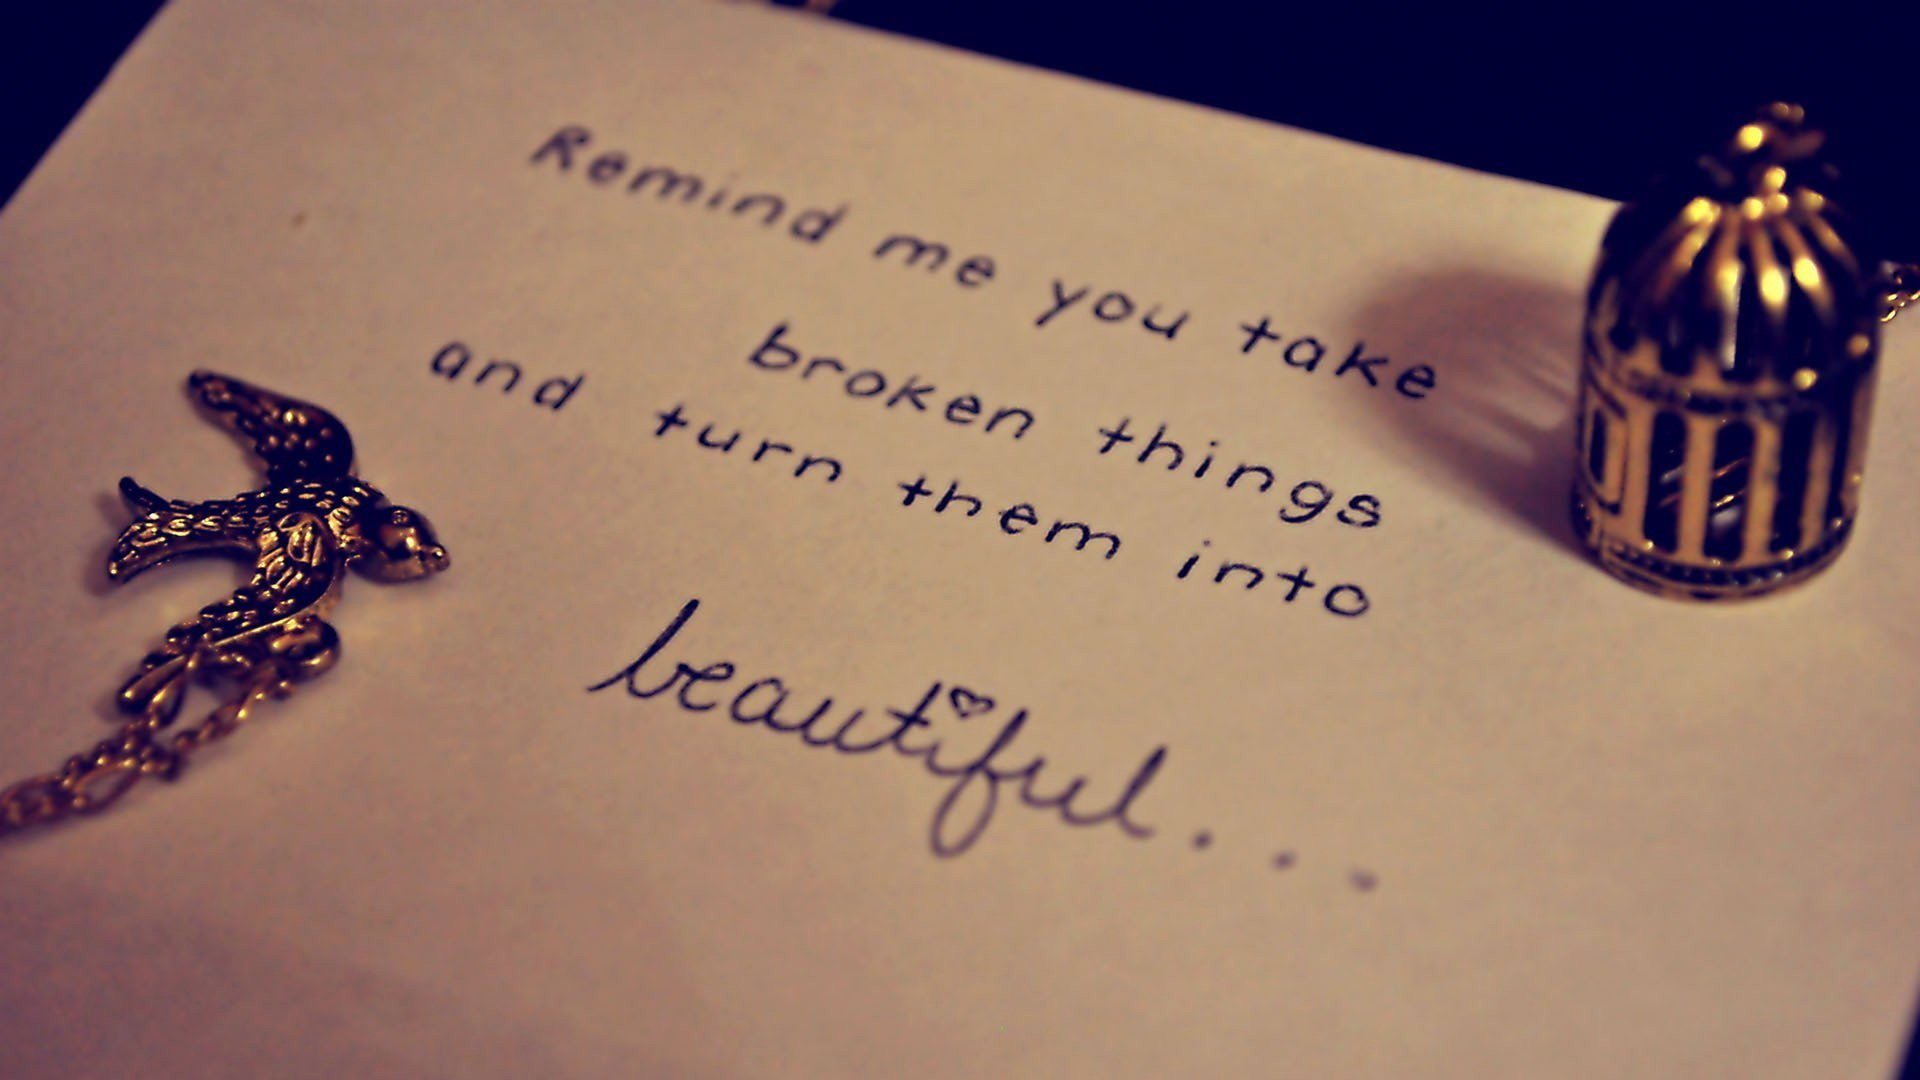 Remind me you take
broken things
and turn them into
beautiful...